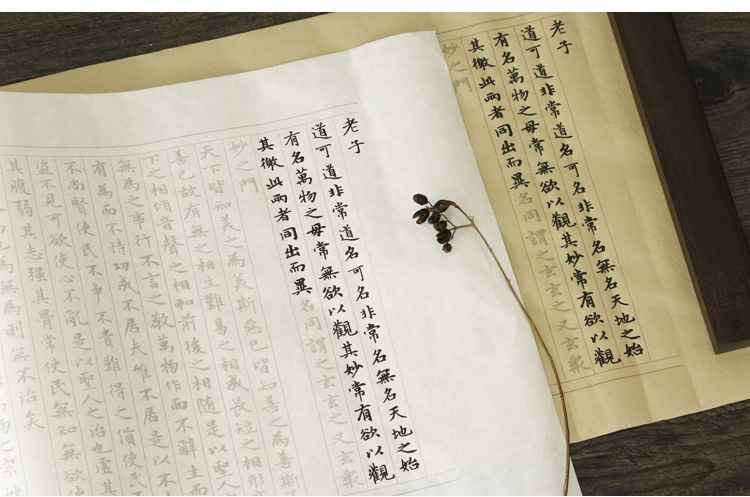 老子
道可道非常道名可名非常名無名天地之始
有名萬物之母常無欲以觀其妙常有欲以觀
其徼此兩者同出而異名同謂之玄玄之又玄衆
妙之門
老子
道可道非常道名可名非常名無名天地之始
有名萬物之母常無欲以觀其妙常有欲以觀
其徼此兩者同出而異名同謂之玄玄之又玄衆
妙之門
天下皆知美之為美斯惡已皆知善之為善斯
善已故有無之相生難易之相成長短之相形
下之相傾音聲之相和前後之相随是以聖人
無為之事行不言之教萬物作而不辭生而
有為而不恃功成不居夫唯不居是以不
不尚賢使民不爭不貴難得之貨使民不
盜不見可欲使心不亂是以聖之治也虛其
其腹弱其志强其骨常使民無知無欲
也為無為則無不治矣